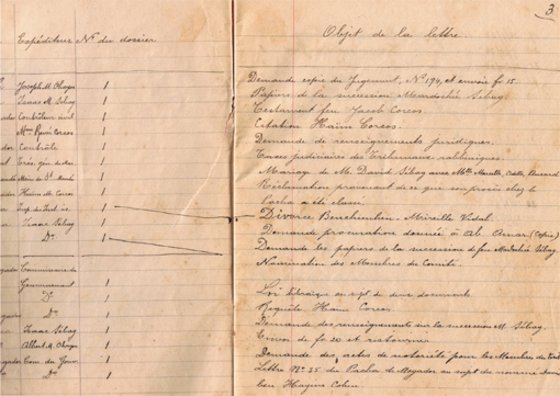 3
Expéditeur Nº du dossier
Joseph M. Ohayon 1
Isaac M. Sebag 1
Contrôleur civil 1
Mme René Corcos 1
Contrôle 1
Trés. gén. du Mar. 1
1
Haïm M. Corcos 1
Insp. des Inst. is. 1
Isaac Sebag 1
Dº 1
Communauté
Gouvernement 1
Dº 1
Dº 1
Isaac Sebag 1
Albert M. Ohayon 1
Com. du Gouv. 1
Dº 1
Objet de la lettre
Demande copie du Jugement, Nº 194, et envoie fr 15.
Papiers de la succession Mardochée Sebag.
Testament feu Jacob Corcos
Citation Haïm Corcos.
Demande de renseignements juridiques.
Taxes judiciaires des Tribunaux rabbiniques.
Mariage de M. David Sebag avec Mlle
Réclamation provenant de ce que son procès chez le
Pacha a été classé
Divorce Benchemhen - Mireille Vidal.
Demande procuration donnée à Ab. Amar (Copie)
Demande les papiers de la succession de feu Mardochée Sebag
Nomination des Membres du Comité.
Loi hébraïque au sujet de deux documents
Requête Haïm Corcos
Demande des renseignements sur la succession M. Sebag.
Envoi de fr 20 et retourner
Demande des actes de notoriété pour les Membres du
Lettre Nº 35 du Pacha de Mogador au sujet du nommé
ben Hayim Cohen